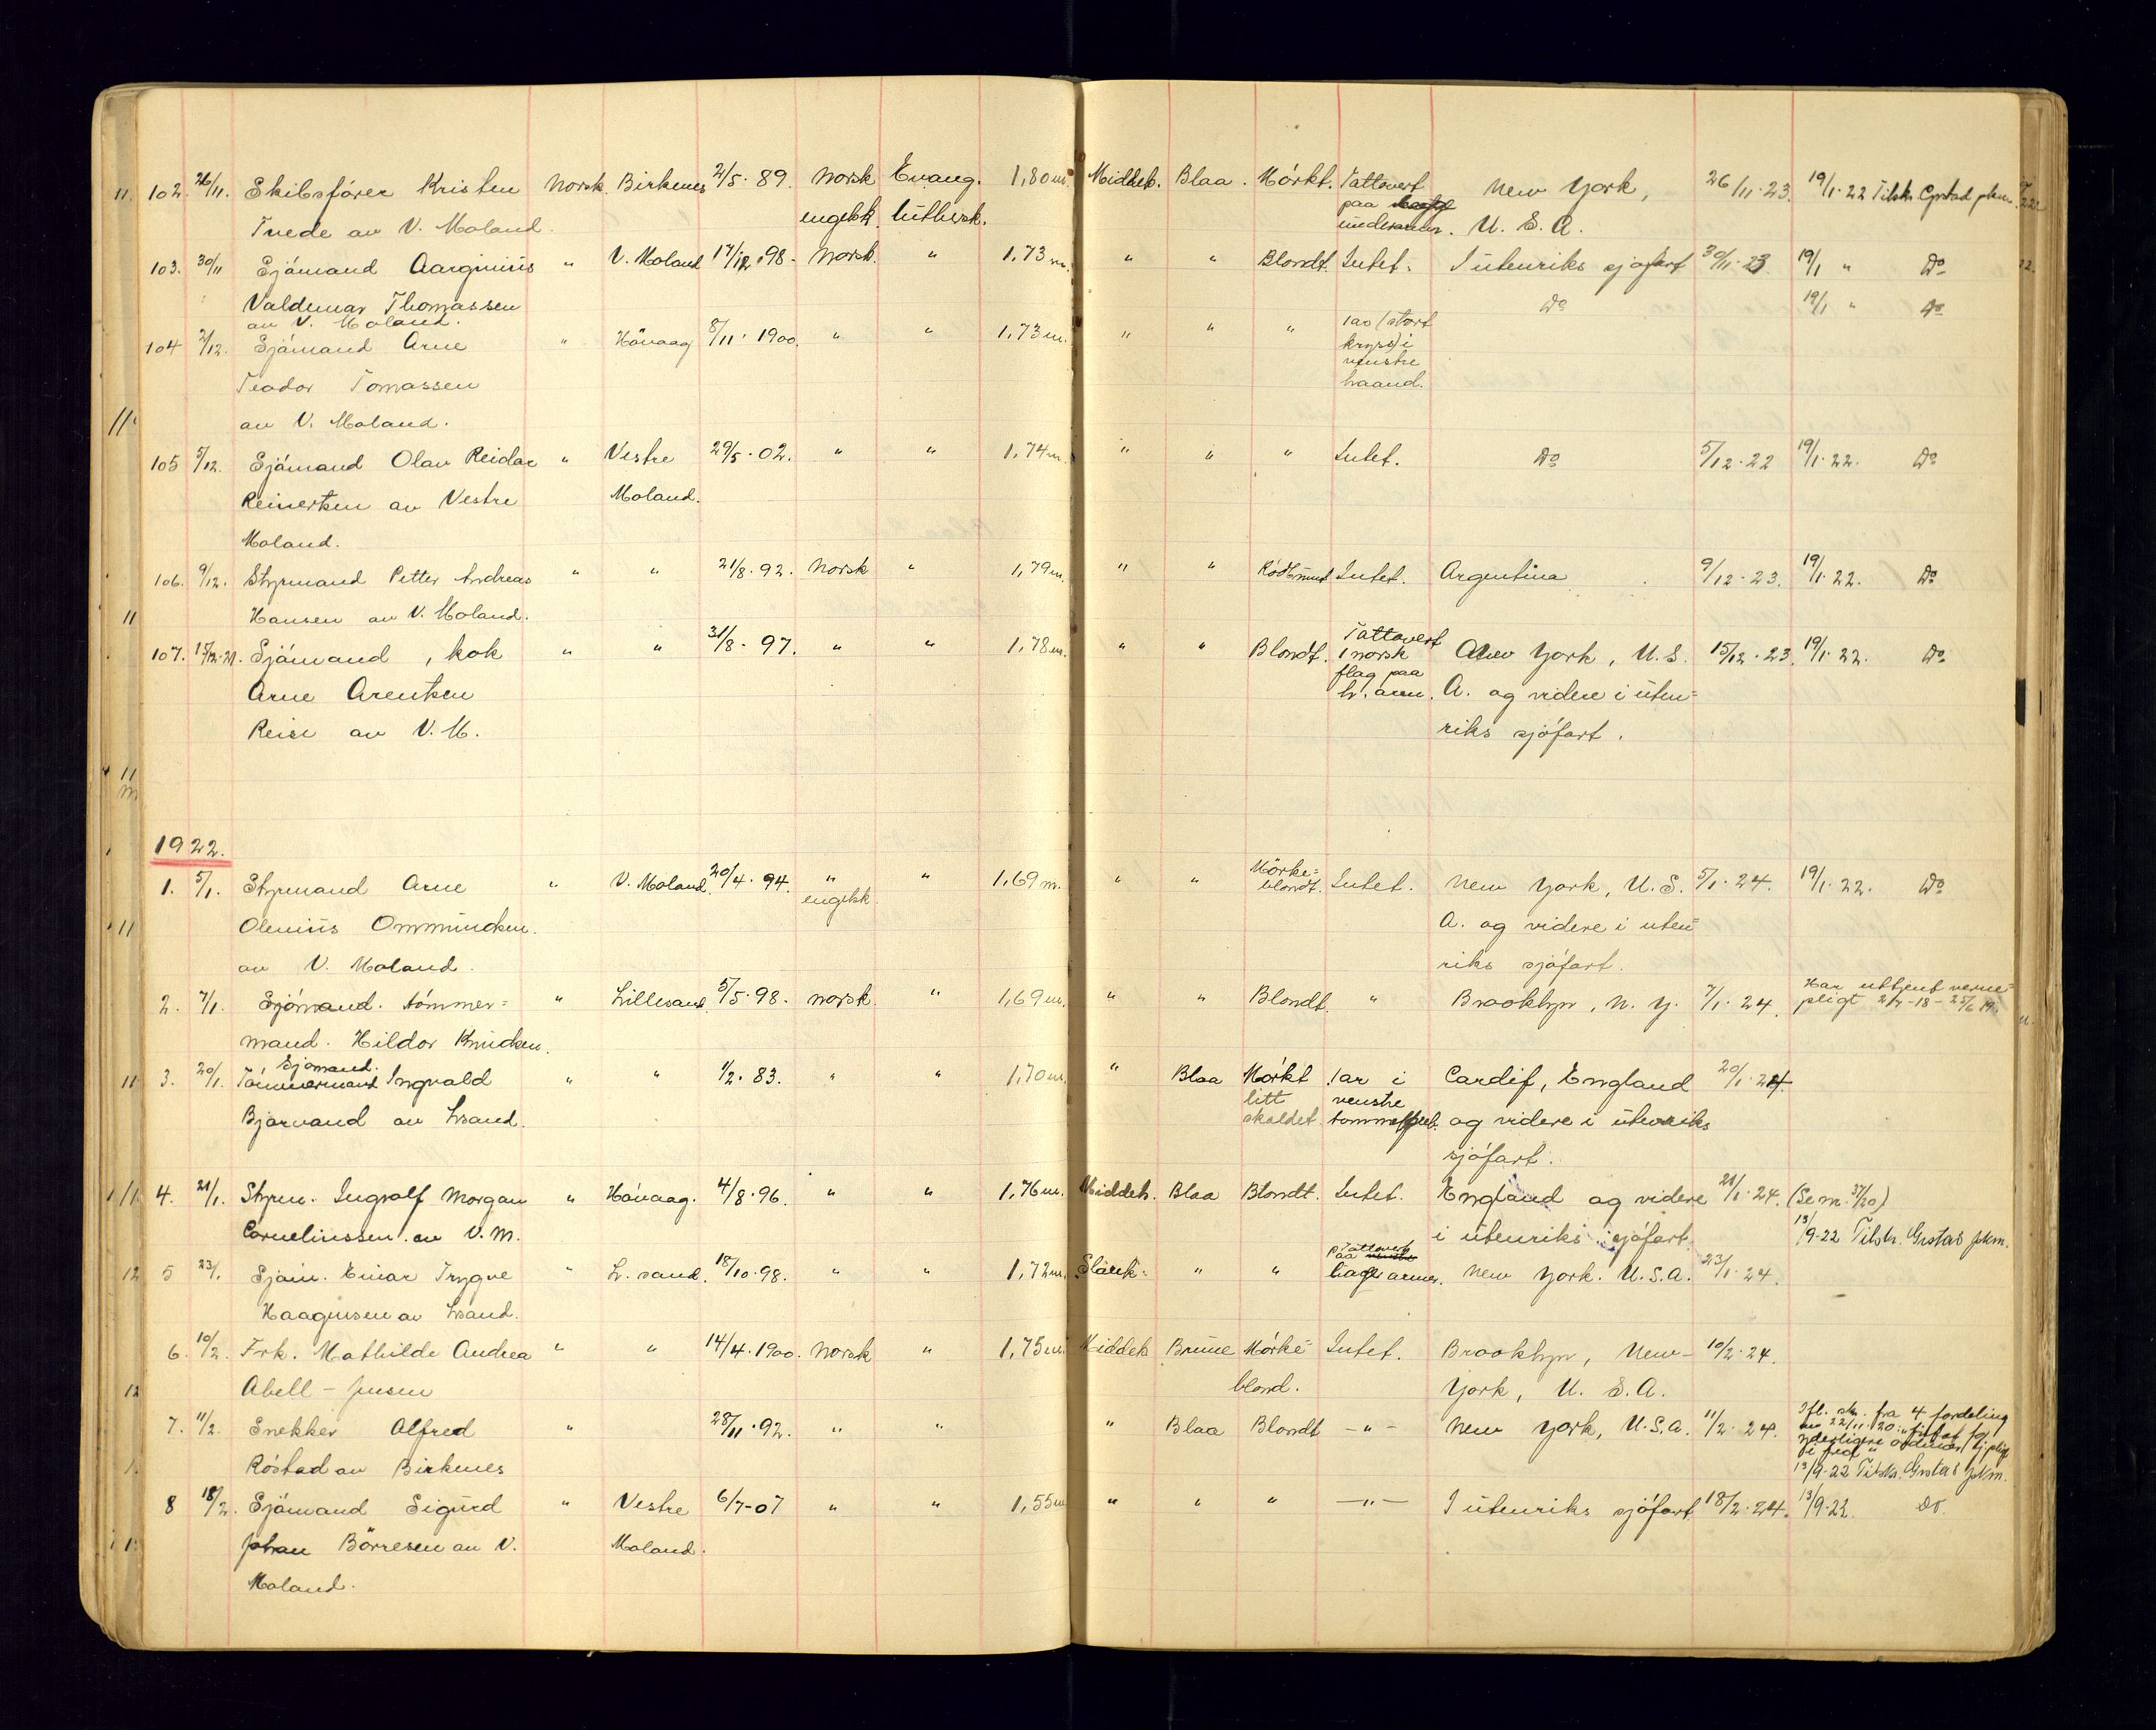 102. 26/11. Skibsfører Kristen Norsk Birkenes 2/5. 89. Norsk Evang. 1,80 m. Middels. Blaa. Mörkt. Tattovert New York, 26/11. 23. 19/1. 22 Tilskr.
Tvede av V. Moland. engelsk luthersk. paa underarmer. U. S. A.
103. 30/11 Sjömand Aarginius " V. Moland 17/12. 98. Norsk. " 1,73 m. " " Blondt. Intet. I utenriks sjöfart 30/11. 23. 19/1 " Do
Valdemar Thomassen Do 19/1 " Do
av V. Moland.
104 2/12. Sjömand Arne " Hövaag 8/11. 1900. " " 1,73 m. " " " 1 ar (stort
kryss) i
Teodor Tomassen venstre
haand.
av V. Moland.
105 5/12. Sjömand Olav Reidar " Vestre 29/5. 02. " " 1,74 m. " " " Intet. Do 5/12. 22 19/1. 22. Do
Reinertsen av Vestre Moland.
Moland.
106. 9/12. Styrmand Petter Andreas " " 21/8. 92. Norsk " 1,79 m. " " Intet. Argentina 9/12. 23. 19/1. 22. Do
Hansen av V. Moland.
107. 15/12. 21. Sjömand, kok " " 31/8. 97. " " 1,78 m. " " Blondt. Tattovert New York, U. S. 15/12. 23. 19/1. 22. Do
1 norsk
Arne Arentsen flag paa A. og videre i uten=
h. arm.
Reise av V. M. riks sjöfart.
1922.
1. 5/1. Styrmand Arne " V. Moland. 20/4. 94. " " 1,69 m. " " Mörke= Intet. New York, U. S. 5/1. 24. 19/1. 22. Do
engelsk. blondt.
Olenius Ommundsen. A. og videre i uten=
av V. Moland. riks sjöfart.
2. 7/1. Sjömand. tömmer= " Lillesand. 5/5. 98. norsk. " 1,69 m. " " Blondt. " Brooklyn, N. Y. 7/1. 24. Har uttjent verne=
pligt
mand. Hildor Knudsen.
3. 20/1. Sjömand. " " 1/2. 83. " " 1,70 m. " Blaa Mörkt 1 ar i Cardif, England 20/1. 24.
Tömmermand Ingvald litt venstre
Bjorvand av Lsand. skaldet. tommelfing. og videre i utenriks
sjöfart.
4. 21/1. Styrm. Ingvolf Morgan " Hövaag. 4/8. 96. " " 1,76 m. Middels. Blaa Blondt. Intet. England og videre 21/1. 24. (Se nr. 37/20)
Corneliussen av V. M. i utenriks sjöfart. 13/9-22 Tilskr. Grstad pkm.
5 23/1. Sjöm. Einar Trygve " L. sand. 18/10. 98. " " 1,72 m. Slank= " " Tattovert New York. U. S. A. 23/1. 24.
paa
Haagensen av Lsand. begge armer.
6. 10/2. Frk. Mathilde Andrea " " 14/4. 1900. Norsk " 1,75 m. Middels Brune Mörke= Intet. Brooklyn, New- 10/2. 24.
Abell - Jensen blond. York, U. S. A.
7. 11/2. Snekker Alfred " 28/11. 92. " " " Blaa Blondt -"- New York, U. S. A. 11/2. 24. Ifl. skr. fra 4 fordeling
Röstad av Birkenes 13/9-22 Tilskr. Grstad pkm.
8 18/2. Sjömand Sigurd " Vestre 6/7-07 " " 1,55 m " " " -"- I utenriks sjöfart 18/2. 24. 13/9. 22. Do
Johan Börresen av V. Moland.
Moland.